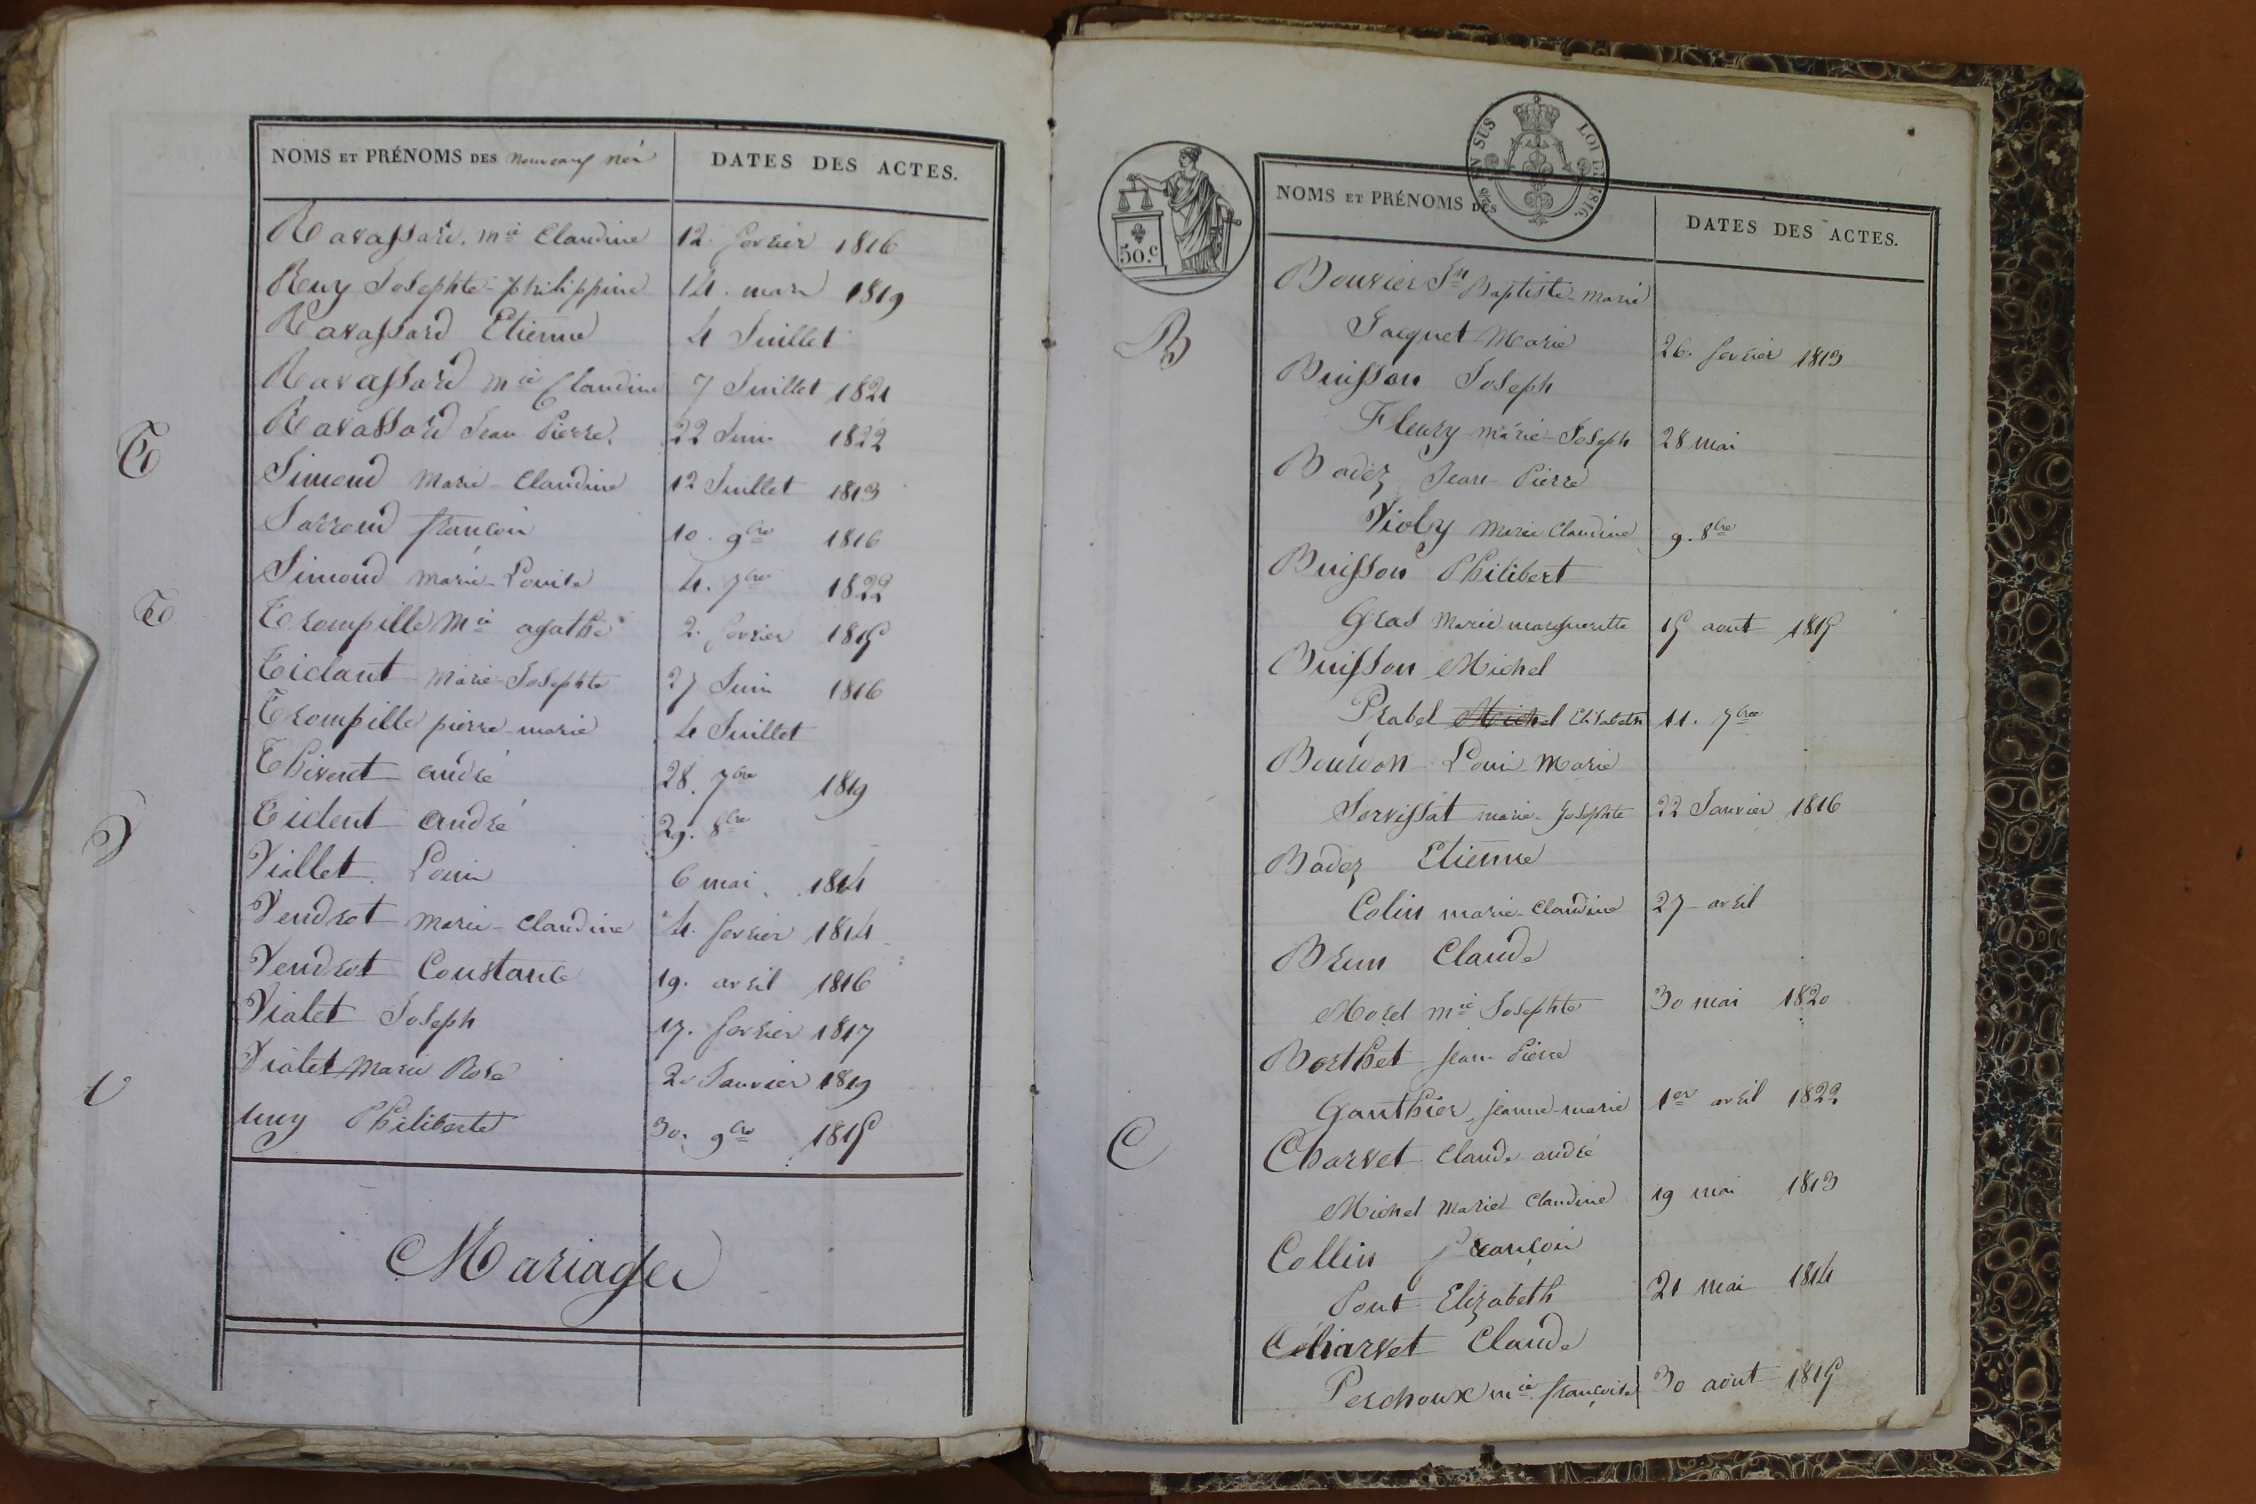 NOMS ET PRÉNOMS DES nouveaux nés
DATES DES ACTES.
Ravassard. mie Claudine 12. fevrier 1816
Ruy Josephte-philippine 14. mars 1819
Ravassard Etienne 4 Juillet
Ravassard mie Claudine 7 Juillet 1821
Ravassard Jean Pierre. 22 Juin 1822
Simond Marie-Claudine 12 Juillet 1813
Sarrond françois 10. 9bre 1816
Simond marie-Louise 4. 7bre 1822
T
Trompille Mie agathe 2. fevrier 1815
Tidant Marie-Josephte 27 Juin 1816
Trompille pierre-marie 4 Juillet
Thivent andré 28. 7bre 1819
Tident andré 29. 8bre
V
Viallet Louis 6 mai 1814
Vendrot marie-Claudine 4. fevrier 1814
Vendrot Constance 19. avril 1816
Vialet Joseph 17. fevrier 1817
Vialet Marie Rose 20 Janvier 1819
U
uny Philiberte 30. 9bre 1815
Mariages
20 EN SUS
LOI DE 1816.
50.c
NOMS ET PRÉNOMS DES
DATES DES ACTES.
B
Bouvier Jn Baptiste-marie
Jacquet Marie 26. fevrier 1813
Buisson Joseph
Fleury-marie-Joseph 28 mai
Badez Jean-Pierre
Violy Marie Claudine 9. 8bre
Buisson Philibert
Gras Marie margueritte 15 aout 1815
Buisson Michel
Prabel Michel Elisabeth 11. 7bre
Bourdon Louis Marie
Servissat marie-Josephte 22 Janvier 1816
Badez Etienne
Colin marie-Claudine 27 avril
Brun Claude
Morel mie Josephte 30 mai 1820
Borthet Jean-Pierre
Gauthier jeanne-marie 1er avril 1822
C
Charvet Claude andré
Michel Marie Claudine 19 mai 1813
Collin françois
Pont Elizabeth 21 mai 1814
Charvet Claude
Perchoux mie françoise 30 août 1815